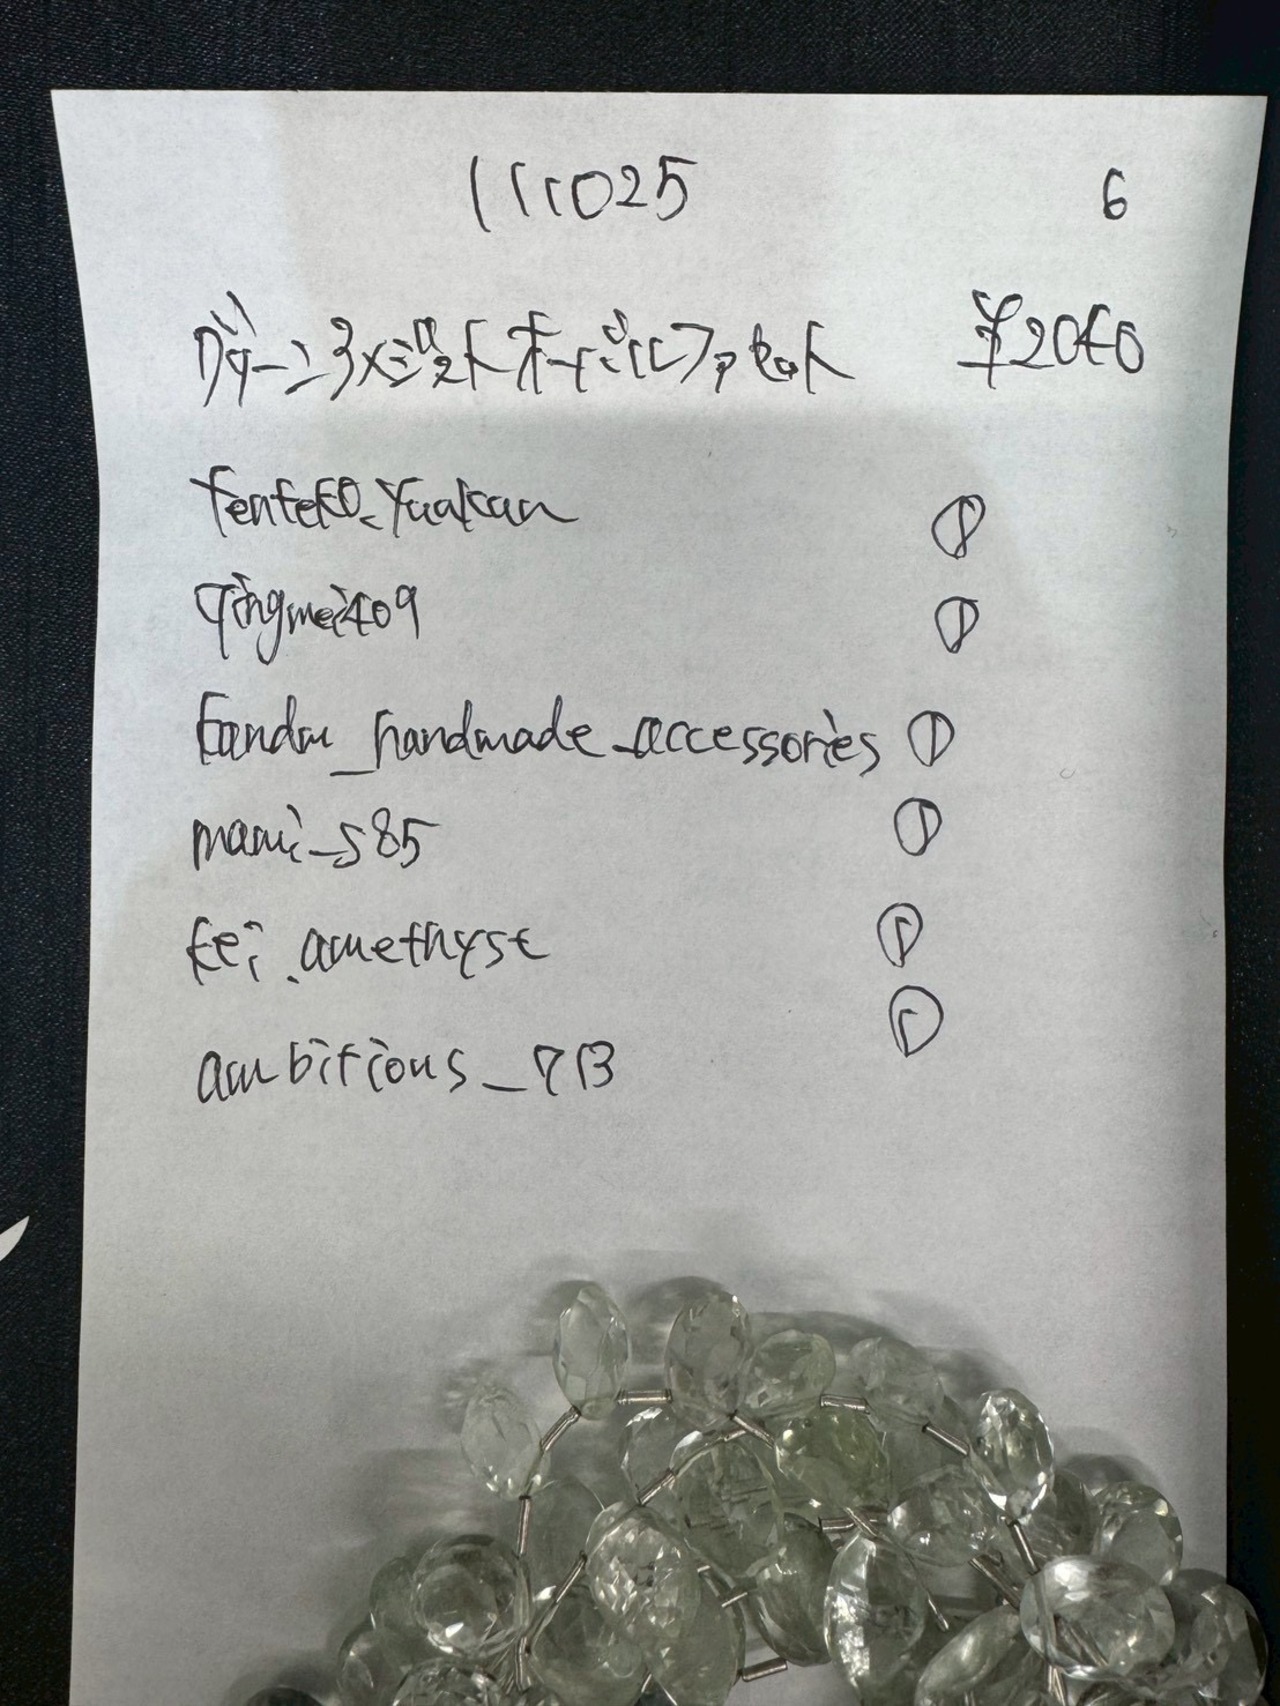 111025 6
グリーンアメジスト オーバルファセット ¥2040
tenteko_yuakan ①
qingmei409 ①
kandm_handmade_accessories ①
mami_s85 ①
kei.amethyst ①
ambitious_713 ①